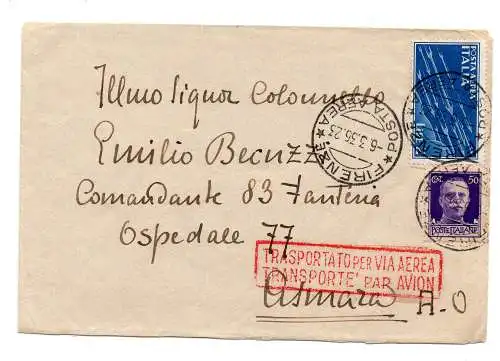 Illmo Signor Colonnello
Emilio Becuzzi
Comandante 83 Fanteria
Ospedale 77
Asmara A.O
TRASPORTATO PER VIA AEREA
TRANSPORTÉ PAR AVION
FIRENZE
POSTA AEREA
-6.3.36.23
POSTA AEREA
ITALIA
CENT. 50
POSTE ITALIANE